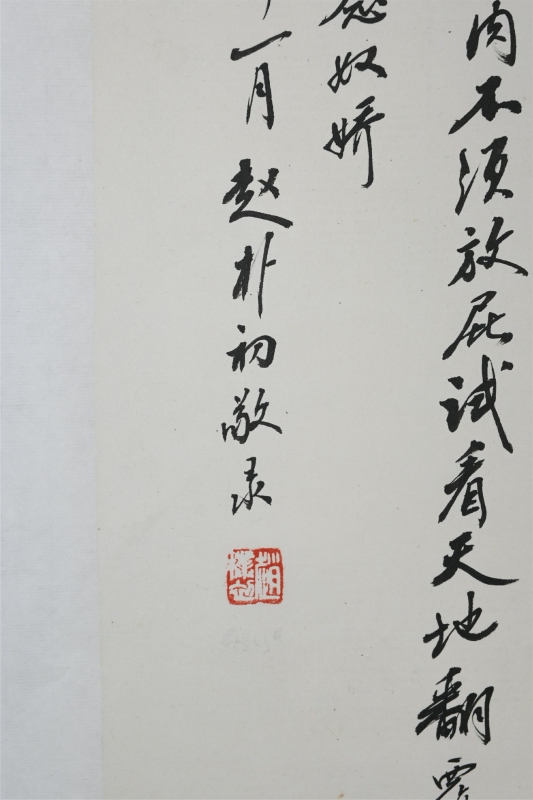 肉不须放屁试看天地翻覆
念奴娇
十一月赵朴初敬录
赵朴初